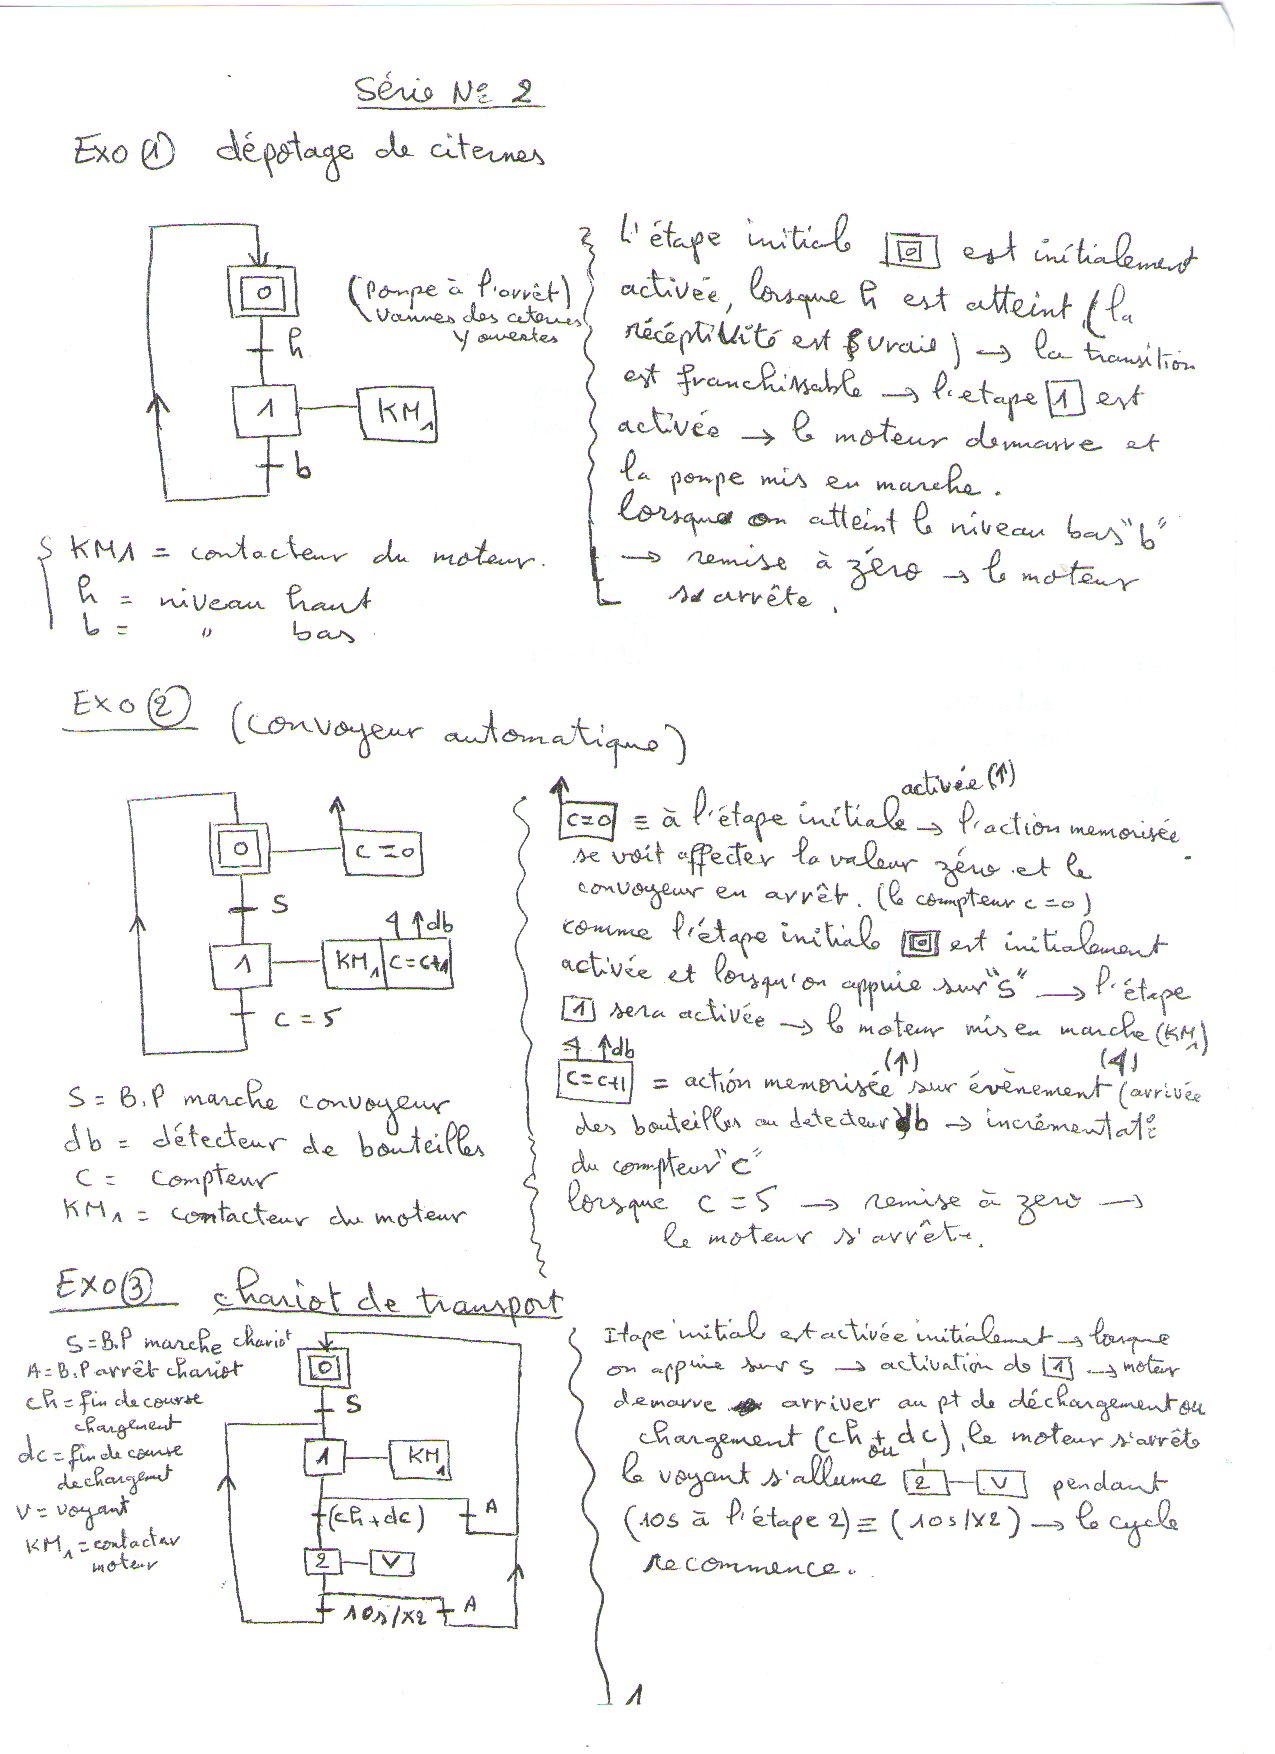 Série N° 2
Exo ① dépotage de citernes
0
(Pompe à l'arrêt)
(Vannes des citernes
ouvertes
h
1
KM1
b
KM1 = contacteur du moteur.
h = niveau haut
b = " bas
L'étape initiale 0 est initialement
activée, lorsque h est atteint (la
réceptivité est vraie) → la transition
est franchissable → l'etape 1 est
activée → le moteur demarre et
la pompe mis en marche.
lorsque on atteint le niveau bas "b"
→ remise à zéro → le moteur
s'arrête.
Exo ② (convoyeur automatique)
0
C=0
S
↑db
1
KM1 C=C+1
C=5
S = B.P marche convoyeur
db = détecteur de bouteilles
C = compteur
KM1 = contacteur du moteur
activée (↑)
C=0 ≡ à l'étape initiale → l'action memorisée
se voit affecter la valeur zéro et le
convoyeur en arrêt. (le compteur c=0)
comme l'étape initiale 0 est initialement
activée et lorsqu'on appuie sur "S" → l'étape
1 sera activée → le moteur mis en marche (KM1)
↑db (↑)
C=C+1 = action memorisée sur évènement (arrivée
des bouteilles au detecteur db → incrémentat°
du compteur "C"
lorsque C=5 → remise à zero →
le moteur s'arrête.
Exo ③ chariot de transport
S=B.P marche chariot
A=B.P arrêt chariot
ch = fin de course
chargement
dc = fin de course
dechargement
V = voyant
KM1 = contacteur
moteur
0
S
1
KM1
(ch+dc)
A
2
V
10s/X2
A
Etape initial est activée initialemet → lorsque
on appuie sur s → activation de 1 → moteur
demarre arriver au pt de déchargement ou
chargement (ch + dc), le moteur s'arrête
ou
le voyant s'allume 2 V pendant
(10s à l'étape 2) ≡ (10s/X2) → le cycle
recommence.
1